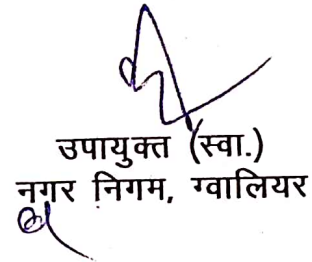 उपायुक्त (स्वा.)
नगर निगम, ग्वालियर